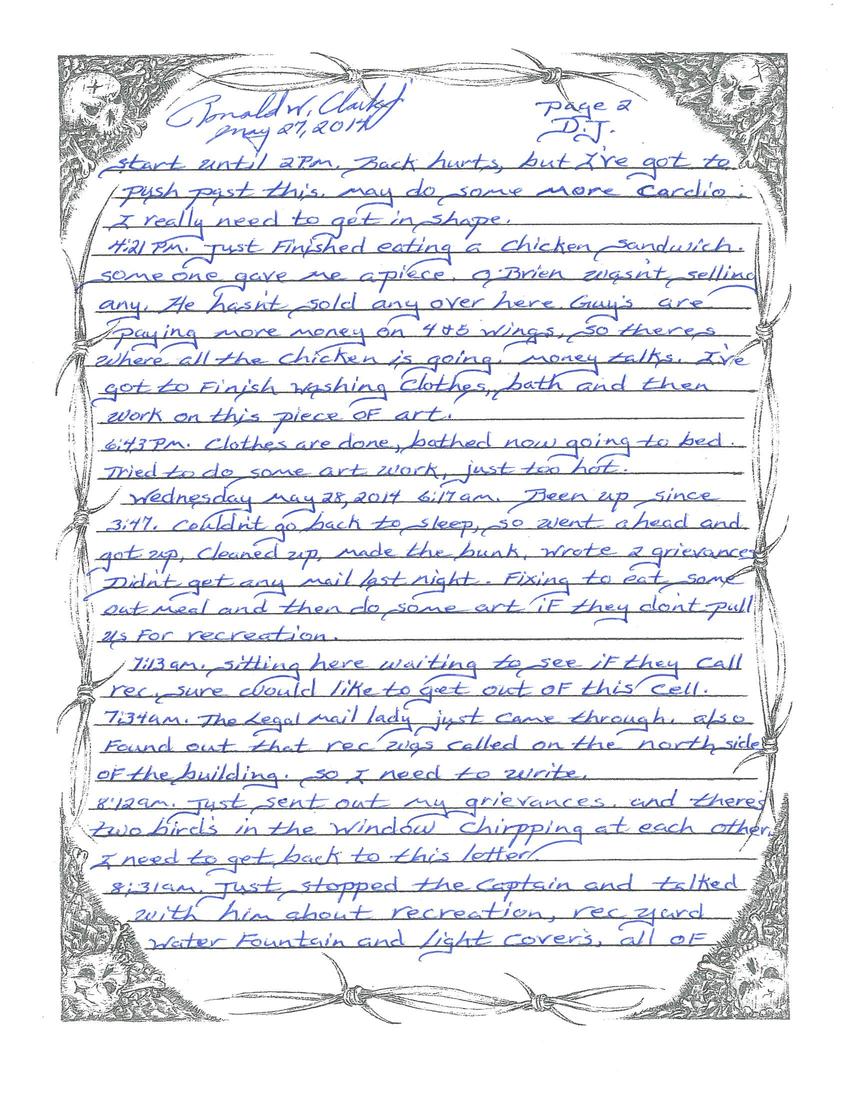 Ronald W. Clark Jr
May 27, 2014
page 2
D.J.
start until 2PM. Back hurts, but I've got to
push past this. may do some more cardio.
I really need to get in shape.
4:21 PM. Just Finished eating a chicken sandwich.
some one gave me a piece. O'Brien wasn't selling
any. He hasn't sold any over here. Guy's are
paying more money on 4 & 5 wings, so there's
where all the chicken is going. money talks. I've
got to Finish washing Clothes, bath and then
work on this piece OF art.
6:43 PM. Clothes are done, bathed now going to bed.
Tried to do some art work, just too hot.
Wednesday May 28, 2014 6:17am. Been up since
3:47. Couldn't go back to sleep, so went ahead and
got up, Cleaned up, made the bunk, wrote 2 grievances
Didn't get any mail last night. Fixing to eat some
oat meal and then do some art iF they don't pull
us For recreation.
7:13 am. sitting here waiting to see iF they call
rec, sure would like to get out OF this cell.
7:34am. The Legal mail lady just came through. also
Found out that rec was called on the north side
OF the building. so I need to write.
8:12am. Just sent out my grievances. and there's
two birds in the window chirpping at each other.
I need to get back to this letter.
8:31am. Just stopped the Captain and talked
with him about recreation, rec yard
water Fountain and light covers, all OF